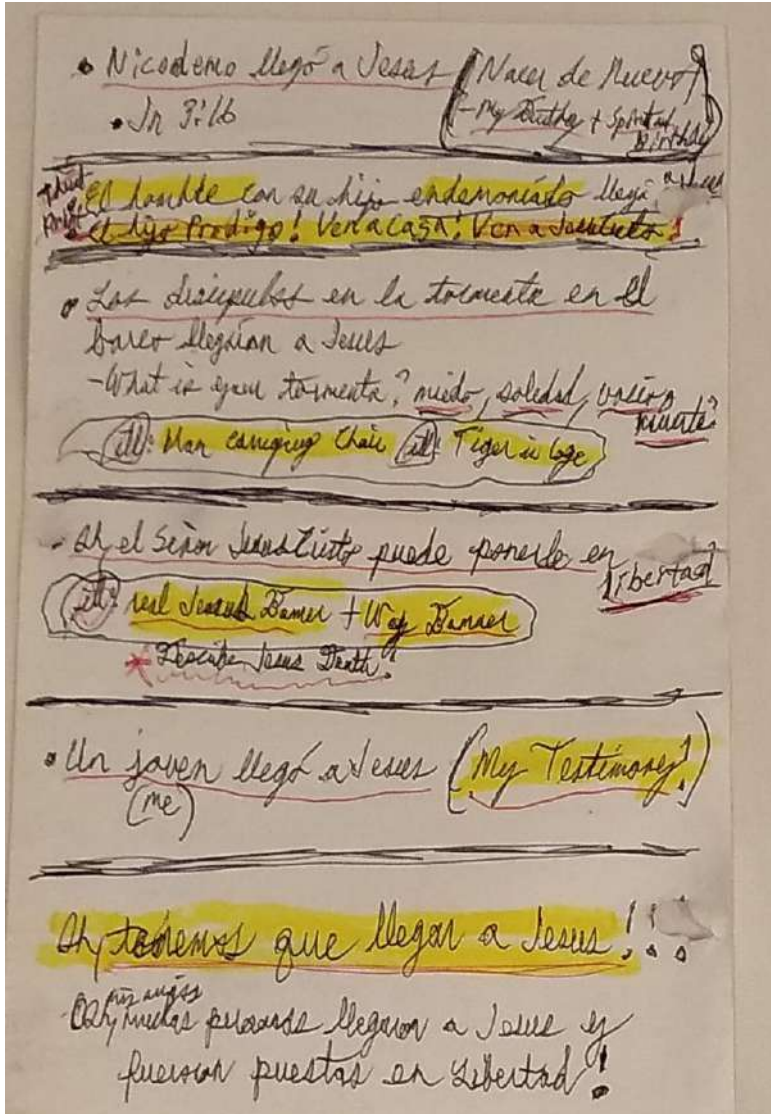 • Nicodemo llegó a Jesus (Nacer de Nuevo!
• Jn 3:16
- My Birthday + Spiritual Birthday
El hombre con su hijo endemoniado llegó a Jesus
El hijo Prodigo! Ven a casa! Ven a Jesucristo!
• Los discipulos en la tormenta en el
barco llegaron a Jesus
- What is your tormenta? miedo, soledad, vacio,
muerte?
ill: Man carrying Chair ill: Tiger in Cage
- Oh, el Señor Jesus Cristo puede ponerle en
libertad!
ill: real Jesus Banner + Way Banner
* Describe Jesus Death!
• Un joven llegó a Jesus (My Testimony!)
(me)
Oh, tenemos que llegar a Jesus!!!
mis amigos
- Oh, muchas personas llegaron a Jesus y
fueron puestas en Libertad!